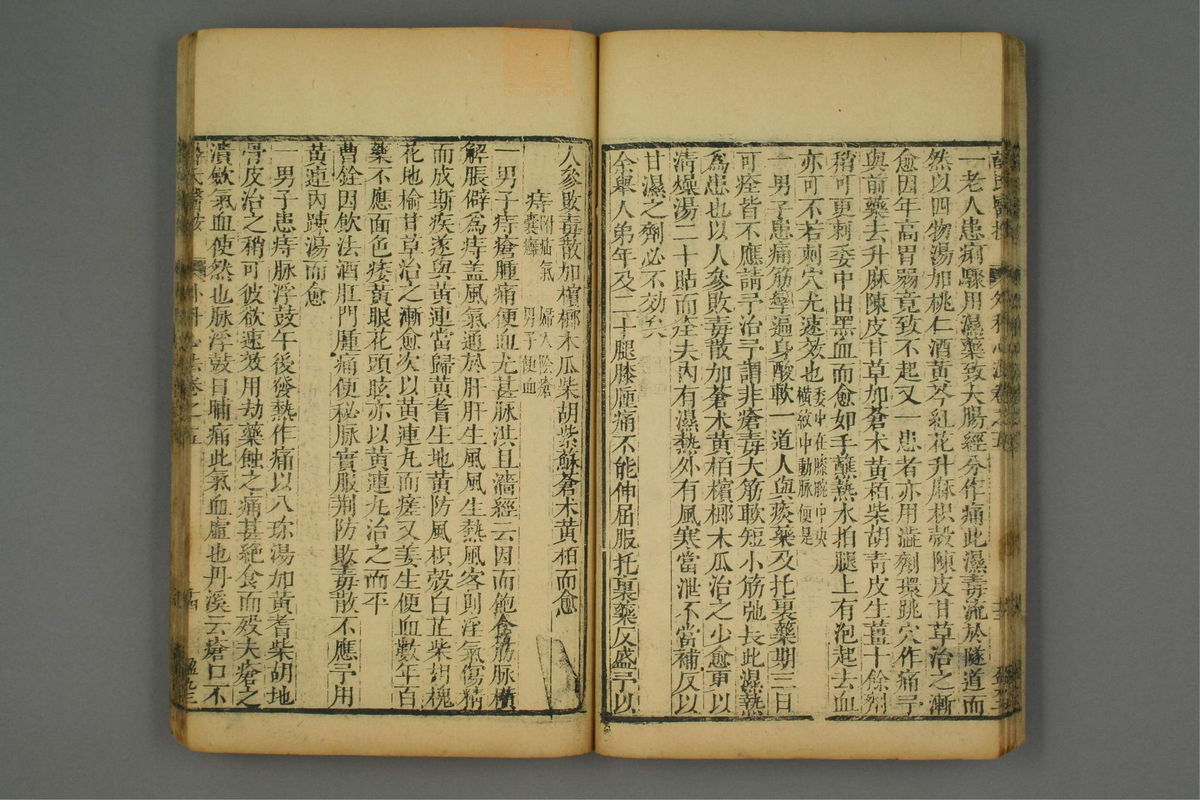 薛氏醫按 外科心法卷之五
一老人患痢驟用濕藥致大腸經分作痛此濕毒流於隧道而
然以四物湯加桃仁酒黃芩紅花升麻枳殼陳皮甘草治之漸
愈因年高胃弱竟致不起又一患者亦用澁劑環跳穴作痛予
與前藥去升麻陳皮甘草加蒼术黃栢柴胡青皮生薑十餘劑
稍可更刺委中出黑血而愈如手蘸熱水拍腿上有泡起去血
亦可不若刺穴尤速效也委中在膝腕中央
橫紋中動脉便是
一男子患痛筋攣遍身酸軟一道人與痰藥及托裏藥期三日
可痊皆不應請予治予謂非瘡毒大筋軟短小筋弛長此濕熱
為患也以人參敗毒散加蒼术黃栢檳榔木瓜治之少愈更以
清燥湯二十貼而痊夫內有濕熱外有風寒當泄不當補反以
甘濕之劑必不効矣
余舉人弟年及二十腿膝腫痛不能伸屈服托裏藥反盛予以
人參敗毒散加檳榔木瓜柴胡紫蘇蒼术黃栢而愈
痔附疝氣 婦人陰瘡
囊癰 男子便血
一男子痔瘡腫痛便血尤甚脉洪且濇經云因而飽食筋脉橫
解腸僻為痔盖風氣通於肝肝生風風生熱風客則淫氣傷精
而成斯疾遂與黃連當歸黃耆生地黃防風枳殼白芷柴胡槐
花地榆甘草治之漸愈次以黃連丸而瘥又姜生便血數年百
藥不應面色痿黃眼花頭眩亦以黃連丸治之而平
曹銓因飲法酒肛門腫痛便秘脉實服荆防敗毒散不應予用
黃連內踈湯而愈
一男子患痔脉浮鼓午後發熱作痛以八珍湯加黃耆柴胡地
骨皮治之稍可彼欲速效用劫藥蝕之痛甚絕食而殁夫瘡之
潰歛氣血使然也脉浮鼓日晡痛此氣血虛也丹溪云瘡口不
薛氏醫按 外科心法卷之五